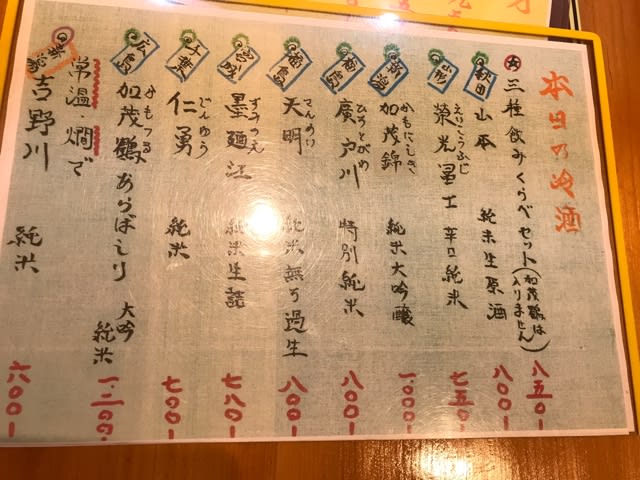 本日の冷酒
三種飲みくらべセット(加茂鶴は入りません) 八五〇-
秋田 山本 純米生原酒 八〇〇-
山形 栄光冨士 えいこうふじ 辛口純米 七五〇-
新潟 加茂錦 かもにしき 純米大吟醸 一、〇〇〇-
福島 廣戸川 ひろとがわ 特別純米 八〇〇-
福島 天明 てんめい 純米無ろ過生 八〇〇-
宮城 墨廼江 すみのえ 純米生詰 七八〇-
千葉 仁勇 じんゆう 純米 七〇〇-
広島 加茂鶴 かもつる あらばしり 大吟純米 一、二〇〇-
常温・燗で
吉野川 純米 六〇〇-